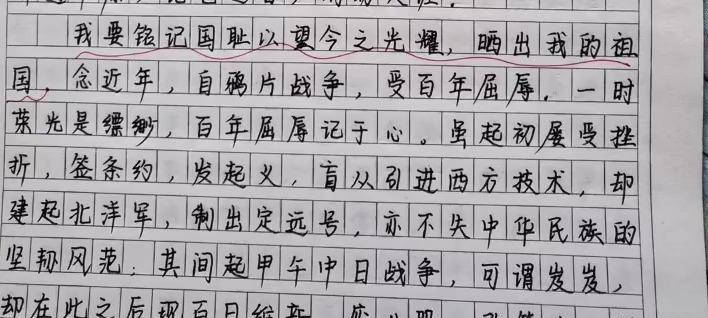 我要铭记国耻以望今之光耀，晒出我的祖
国，念近年，自鸦片战争，受百年屈辱．一时
荣光是缥缈，百年屈辱记于心。虽起初屡受挫
折，签条约，发起义，盲从引进西方技术，却
建起北洋军，制出定远号，亦不失中华民族的
坚韧风范；其间起甲午中日战争，可谓岌岌，
却在此之后现百日维新